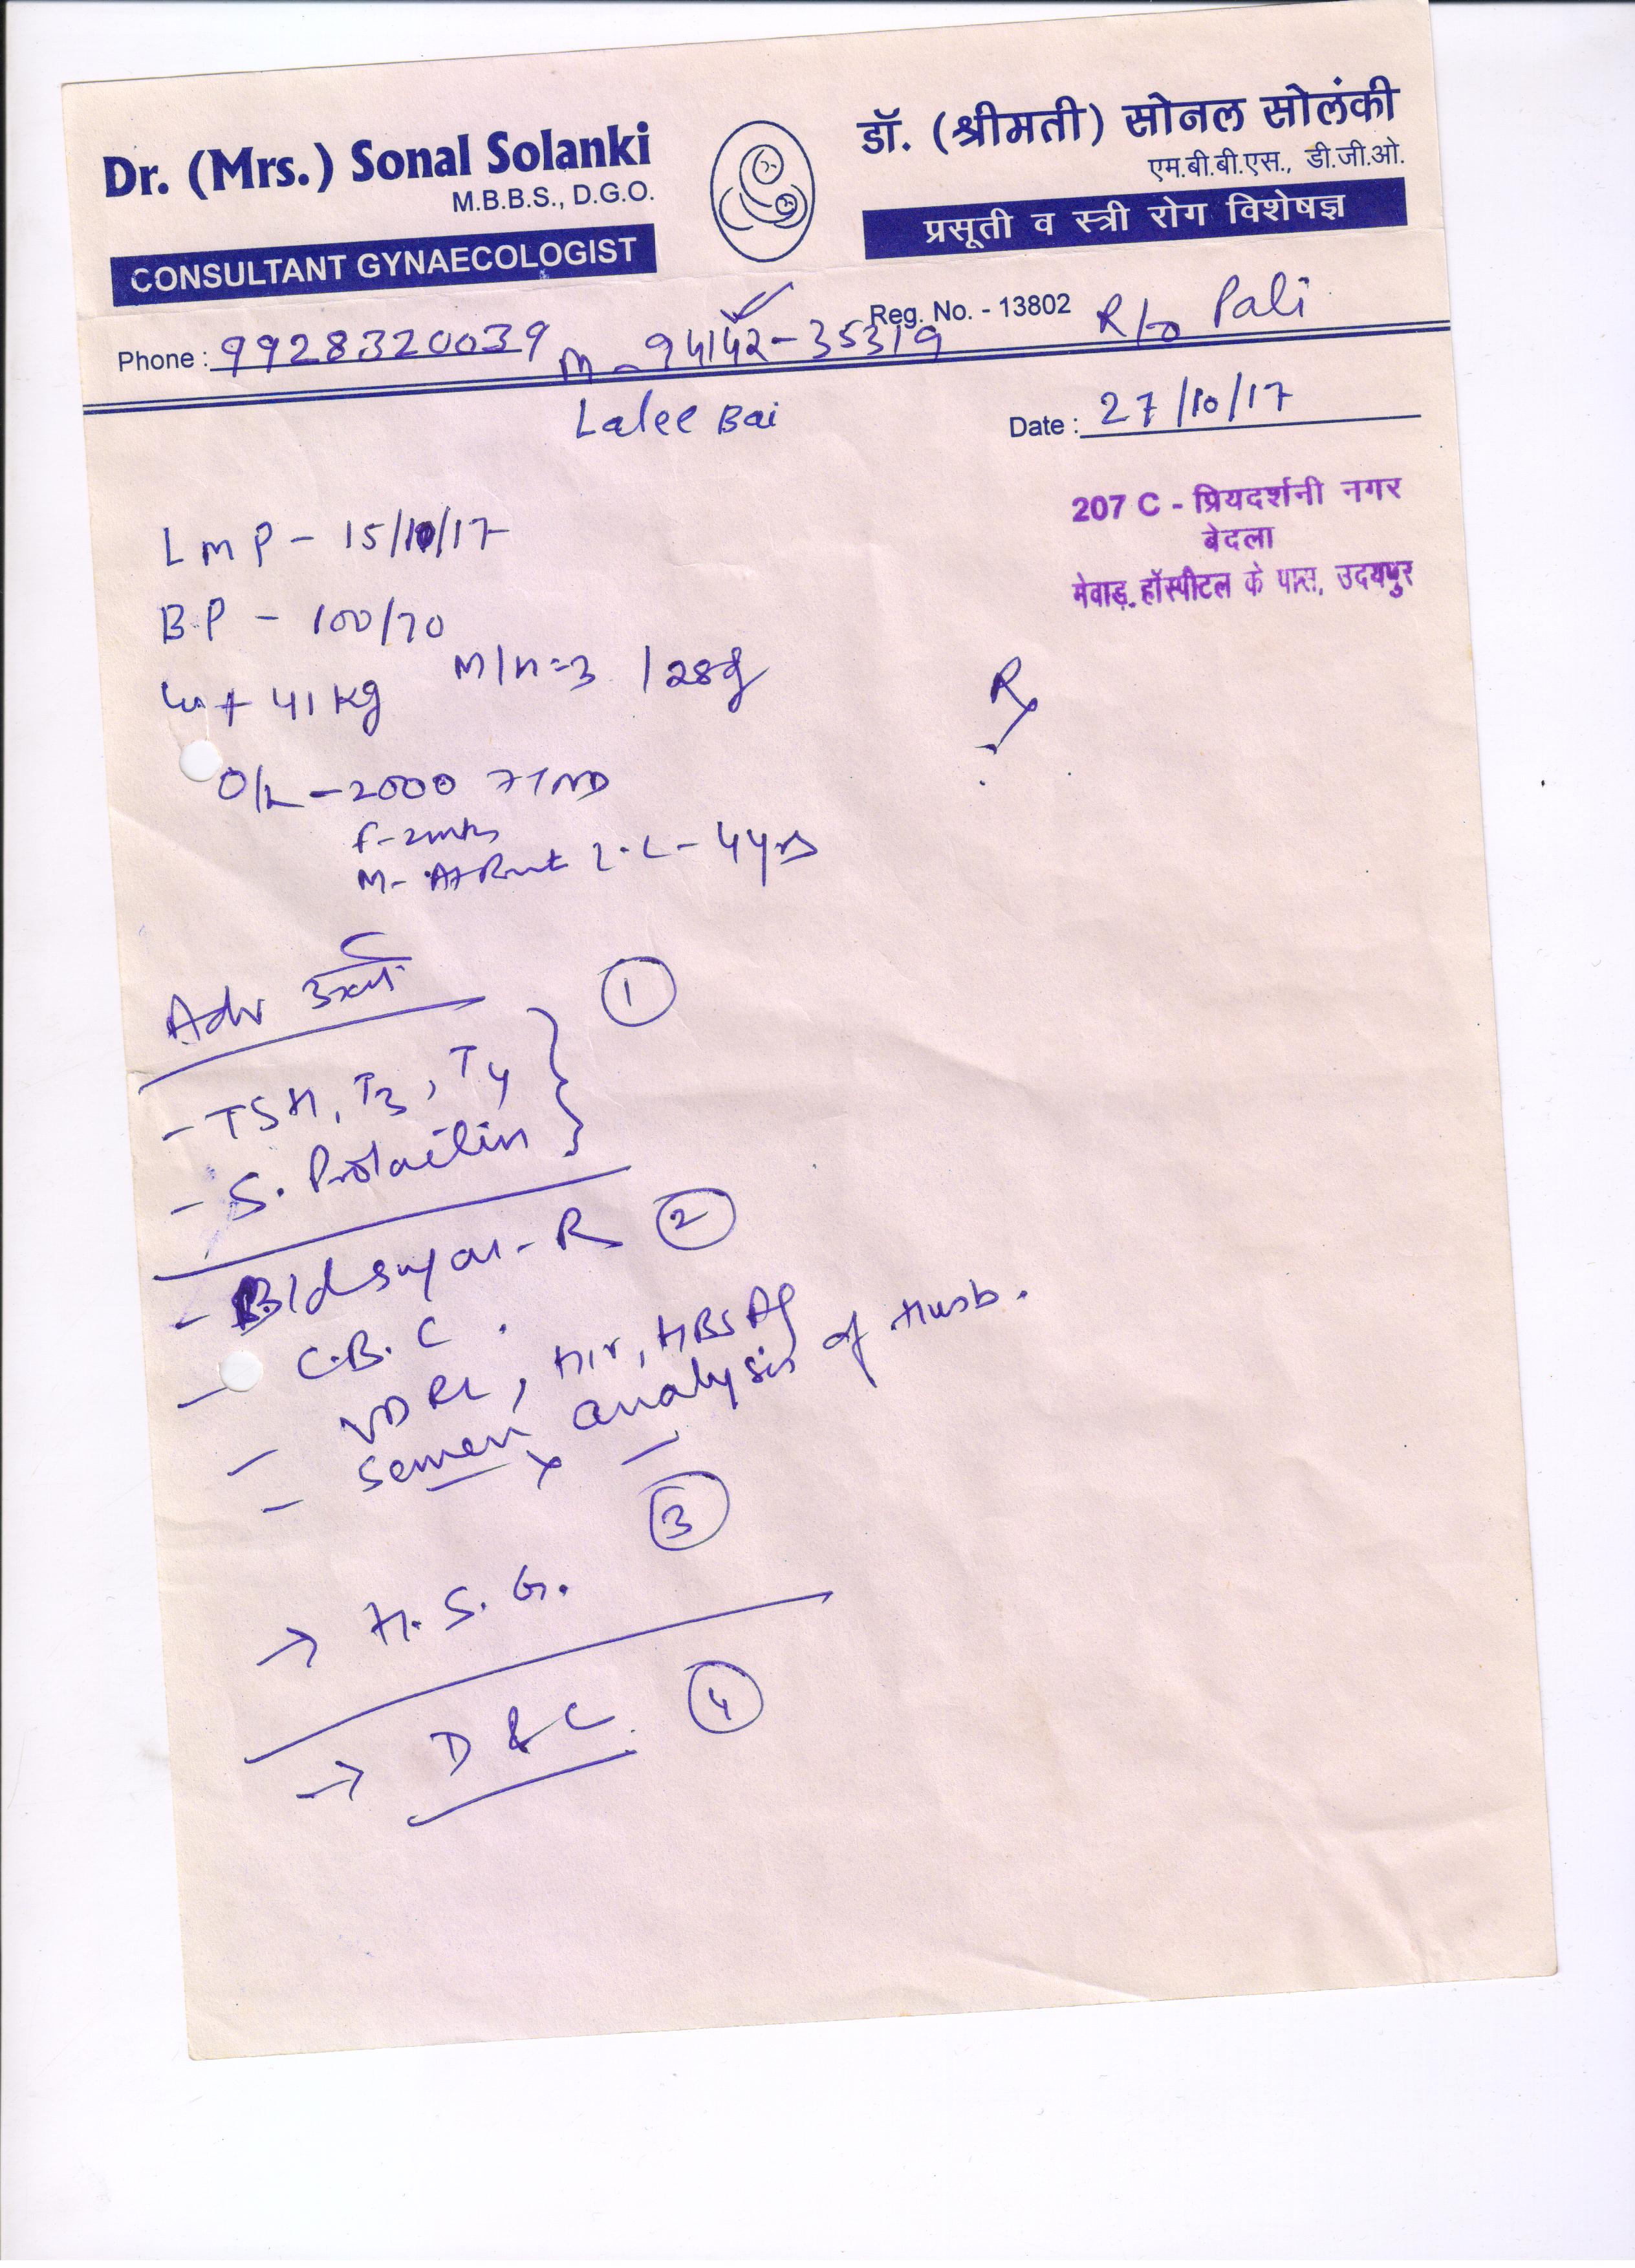 Dr. (Mrs.) Sonal Solanki
M.B.B.S., D.G.O.
CONSULTANT GYNAECOLOGIST
डॉ. (श्रीमती) सोनल सोलंकी
एम.बी.बी.एस., डी.जी.ओ.
प्रसूती व स्त्री रोग विशेषज्ञ
Reg. No. - 13802 R/o Pali
Phone : 9928320039 M - 94142-35319
Lalee Bai
Date : 27/10/17
207 C - प्रियदर्शनी नगर
बेदला
मेवाड़ हॉस्पीटल के पास, उदयपुर
LMP - 15/10/17
B.P - 100/70
wt 41 kg M/H=3 /28d
Rx
O/H - 2000 FTND
L.C - 4 yrs
Adv
1
- TSH, T3, T4
- S. Prolactin
2
- Bld sugar - R
- C.B.C.
- VDRL, HIV, HBSAg
- Semen analysis of Husb.
3
→ H.S.G.
4
→ D & C